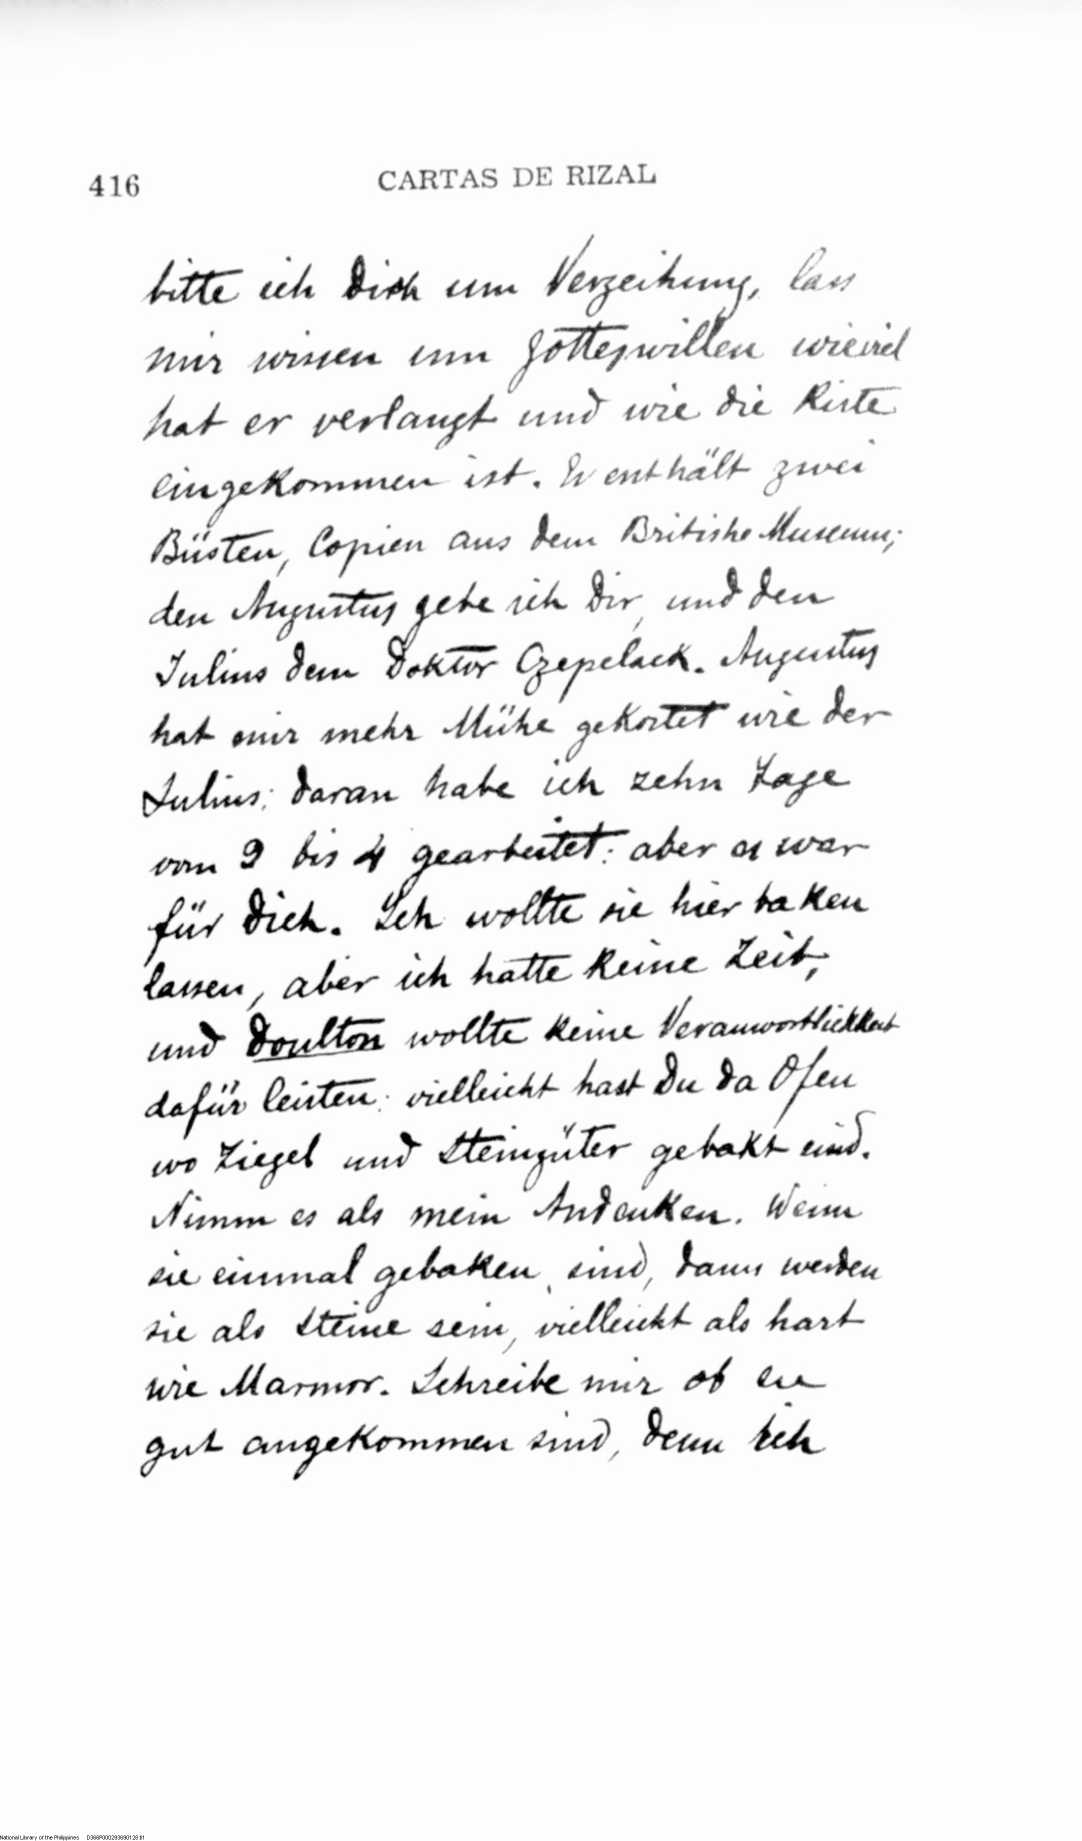 416 CARTAS DE RIZAL
bitte ich Dich um Verzeihung, lass
mir wissen um Gotteswillen wieviel
hat er verlangt und wie die Kiste
eingekommen ist. Es enthält zwei
Büsten, Copien aus dem Britishe Museum;
den Augustus gebe ich Dir, und den
Julius dem Doktor Czepelack. Augustus
hat mir mehr Mühe gekostet wie der
Julius; daran habe ich zehn Tage
vom 9 bis 4 gearbeitet: aber es war
für Dich. Ich wollte sie hier baken
lassen, aber ich hatte keine Zeit,
und Doulton wollte keine Veranwortlichkeit
dafür leisten: vielleicht hast Du da Ofen
wo Ziegel und Steingüter gebakt sind.
Nimm es als mein Andenken. Wenn
sie einmal gebaken sind, dann werden
sie als Steine sein, vielleicht als hart
wie Marmor. Schreibe mir ob sie
gut angekommen sind, denn ich
National Library of the Philippines